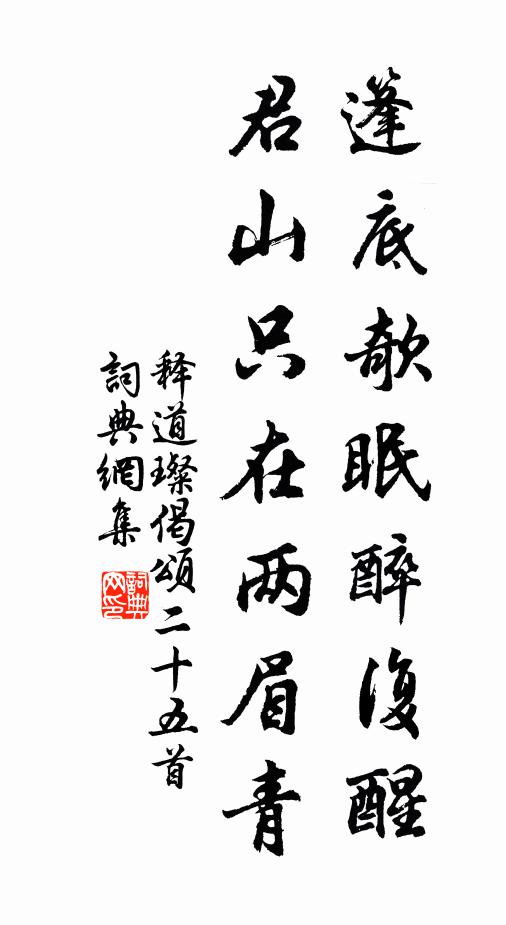 蓬底欹眠醉復醒
君山只在两眉青
释道璨偈頌二十五首
詞典網集
詞典网印